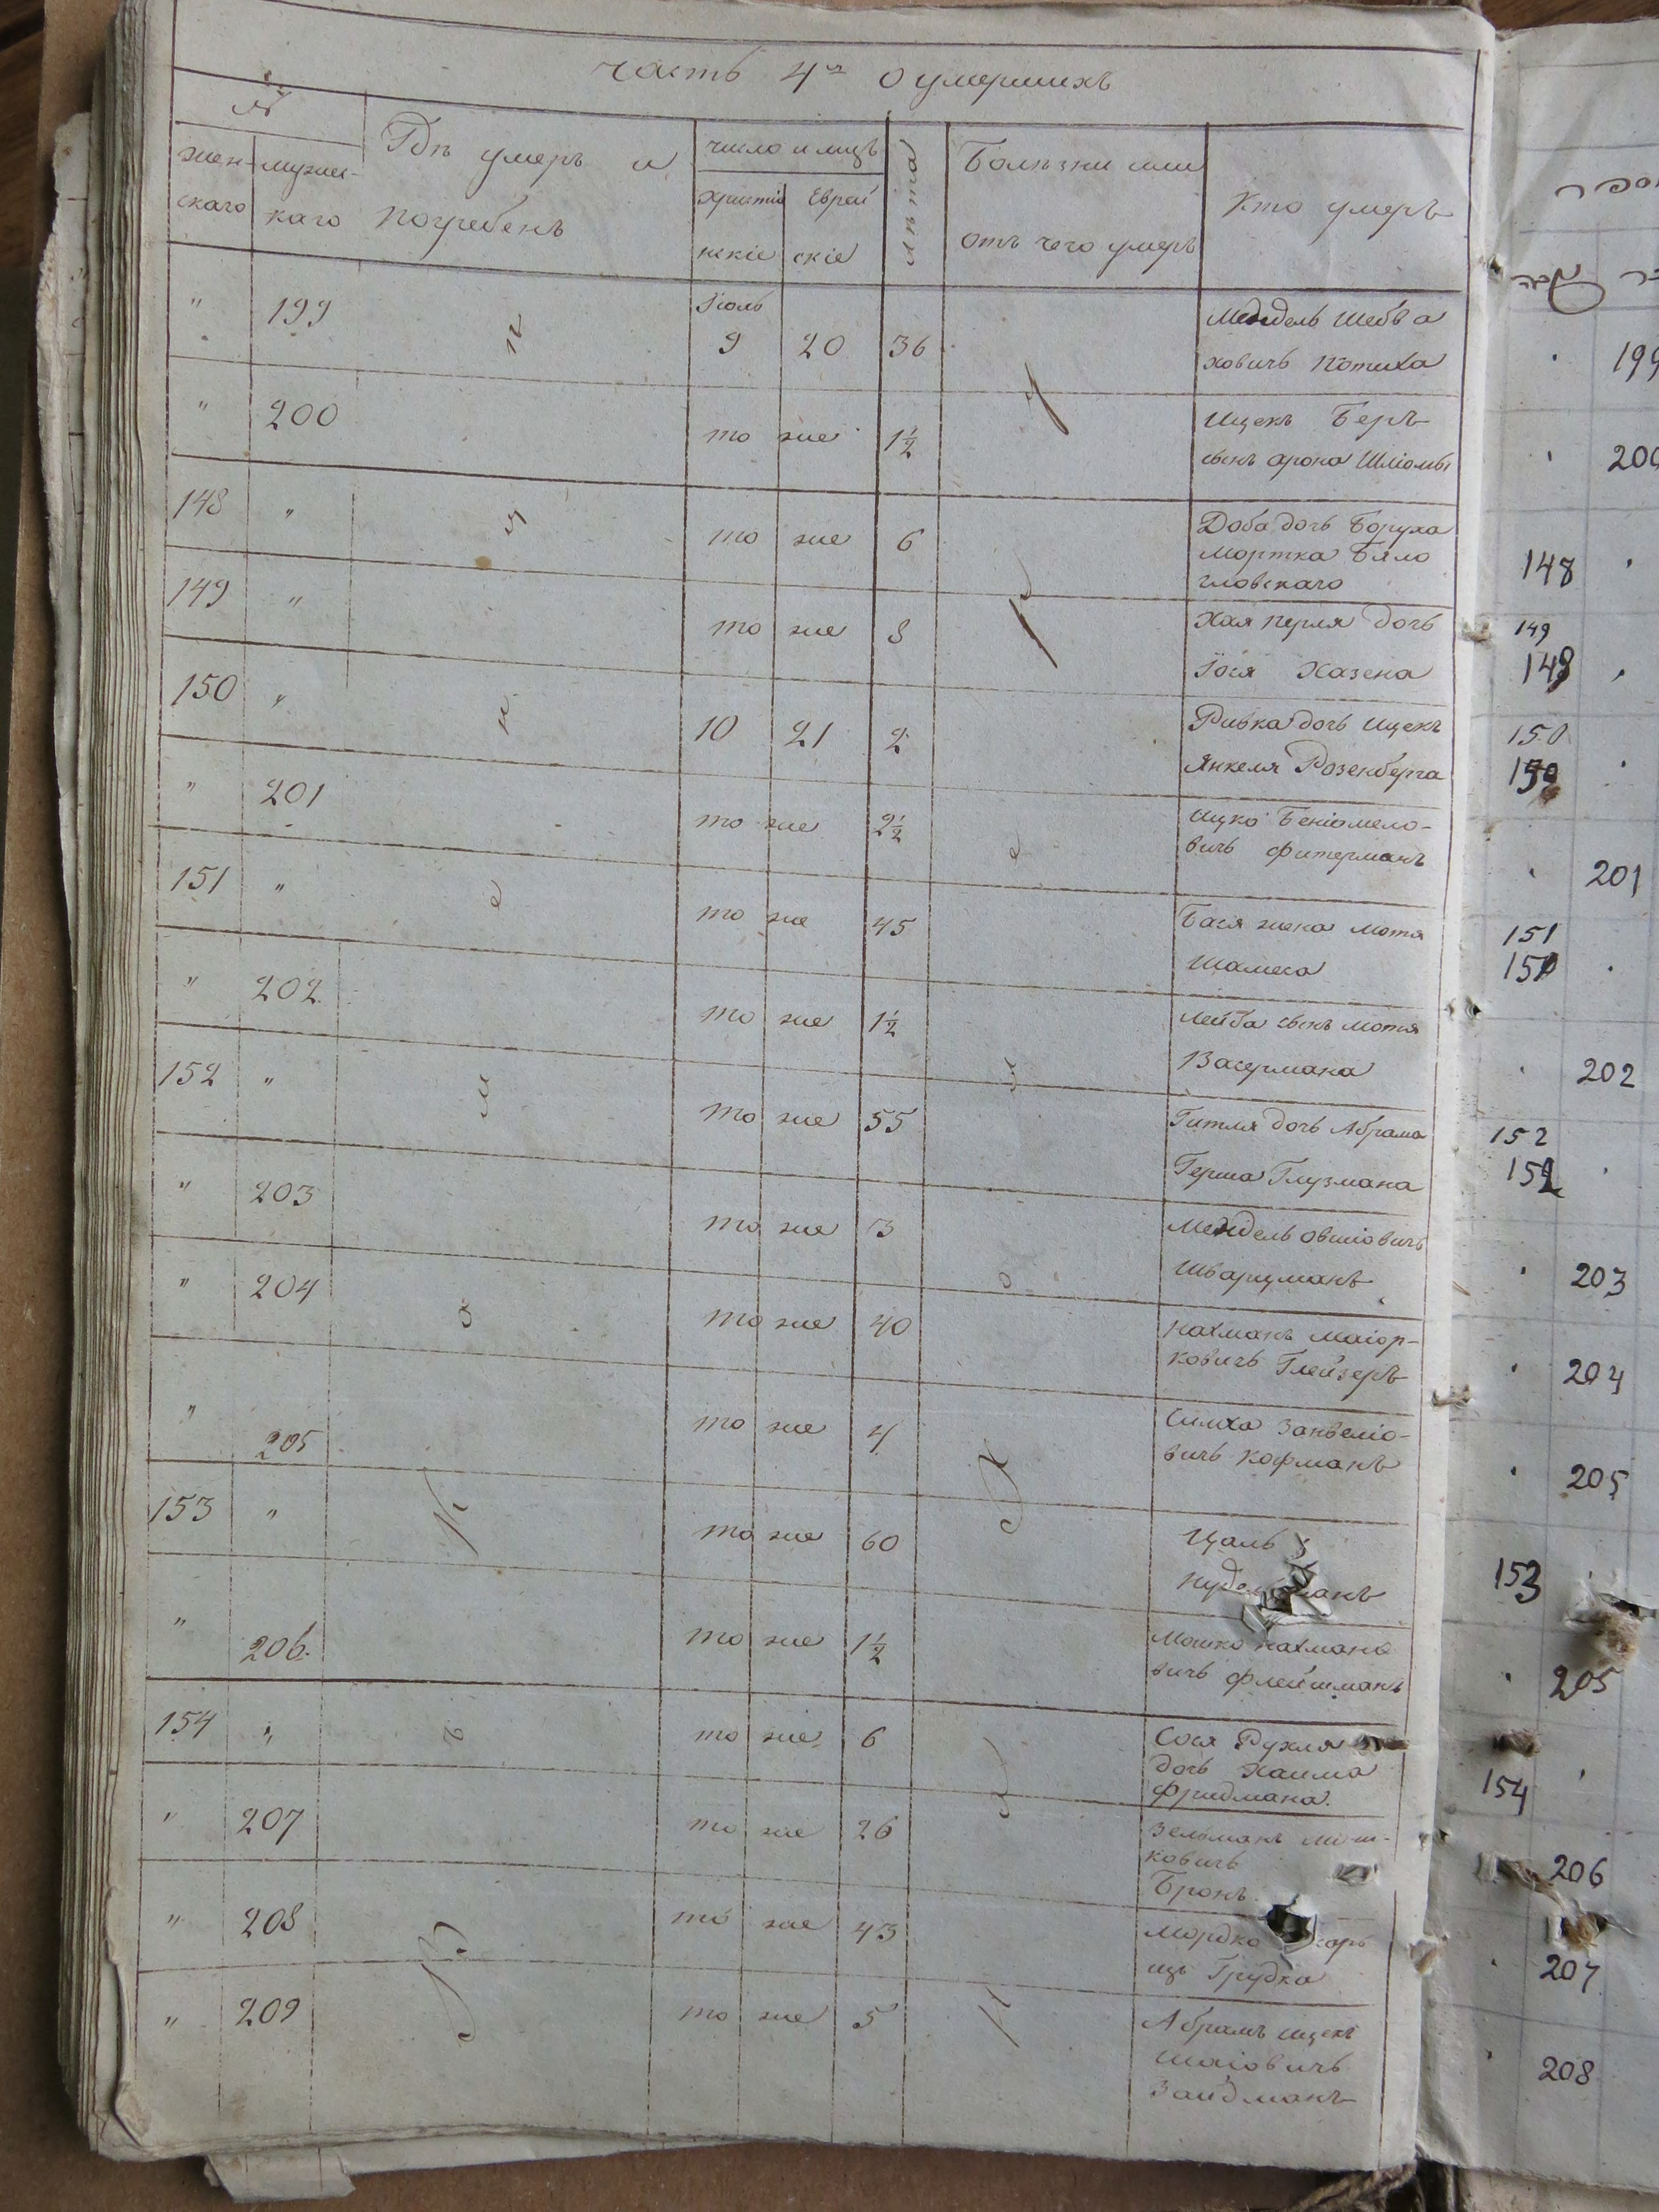 часть 4я о умершихъ
№
жен-
скаго
мужес-
каго
Гдѣ умеръ и
погребенъ
число и мцъ
Христіа
нскіе
Еврей
скіе
лѣта
Болѣзни или
отъ чего умеръ
Кто умеръ
" 199 Іюль 9 20 36 Мендель Шевва
ховичъ Потиха
" 200 то же 1½ Ицекъ Беръ
сынъ арона Шліомы
148 " то же 6 Доба дочь Боруха
Мортка Бяло
гловскаго
149 " то же 8 Хая перля дочь
Іося Хазена
150 " 10 21 2 Ривка дочь Ицекъ
Янкеля Розенберга
" 201 то же 2½ Ицко Беніомело-
вичъ Фитерманъ
151 " то же 45 Бася жена Мотя
Шамеса
" 202 то же 1½ Лейба сынъ Мотя
Васермана
152 " то же 55 Гитля дочь Абрама
Герша Глузмана
" 203 то же 3 Мендель Овшіовичъ
Шварцманъ
" 204 то же 40 Нахманъ Маіор-
ковичъ Глейзеръ
" 205 то же 4 Симха Занвеліо-
вичъ Кофманъ
153 " то же 60 Цаль
" 206. то же 1½ Мошко Нахмано
вичъ Флейшманъ
154 " то же 6 Сося Рухля
дочь Хаима
Фридмана.
" 207 то же 26 Зельманъ
ковичъ
Бронъ
" 208 то же 43 Мордко
Грудка
" 209 то же 5 Абрамъ Ицекъ
Шаіовичъ
Зайдманъ
199
200
148
149
149
150
150
201
151
151
202
152
152
203
204
205
153
205
154
206
207
208